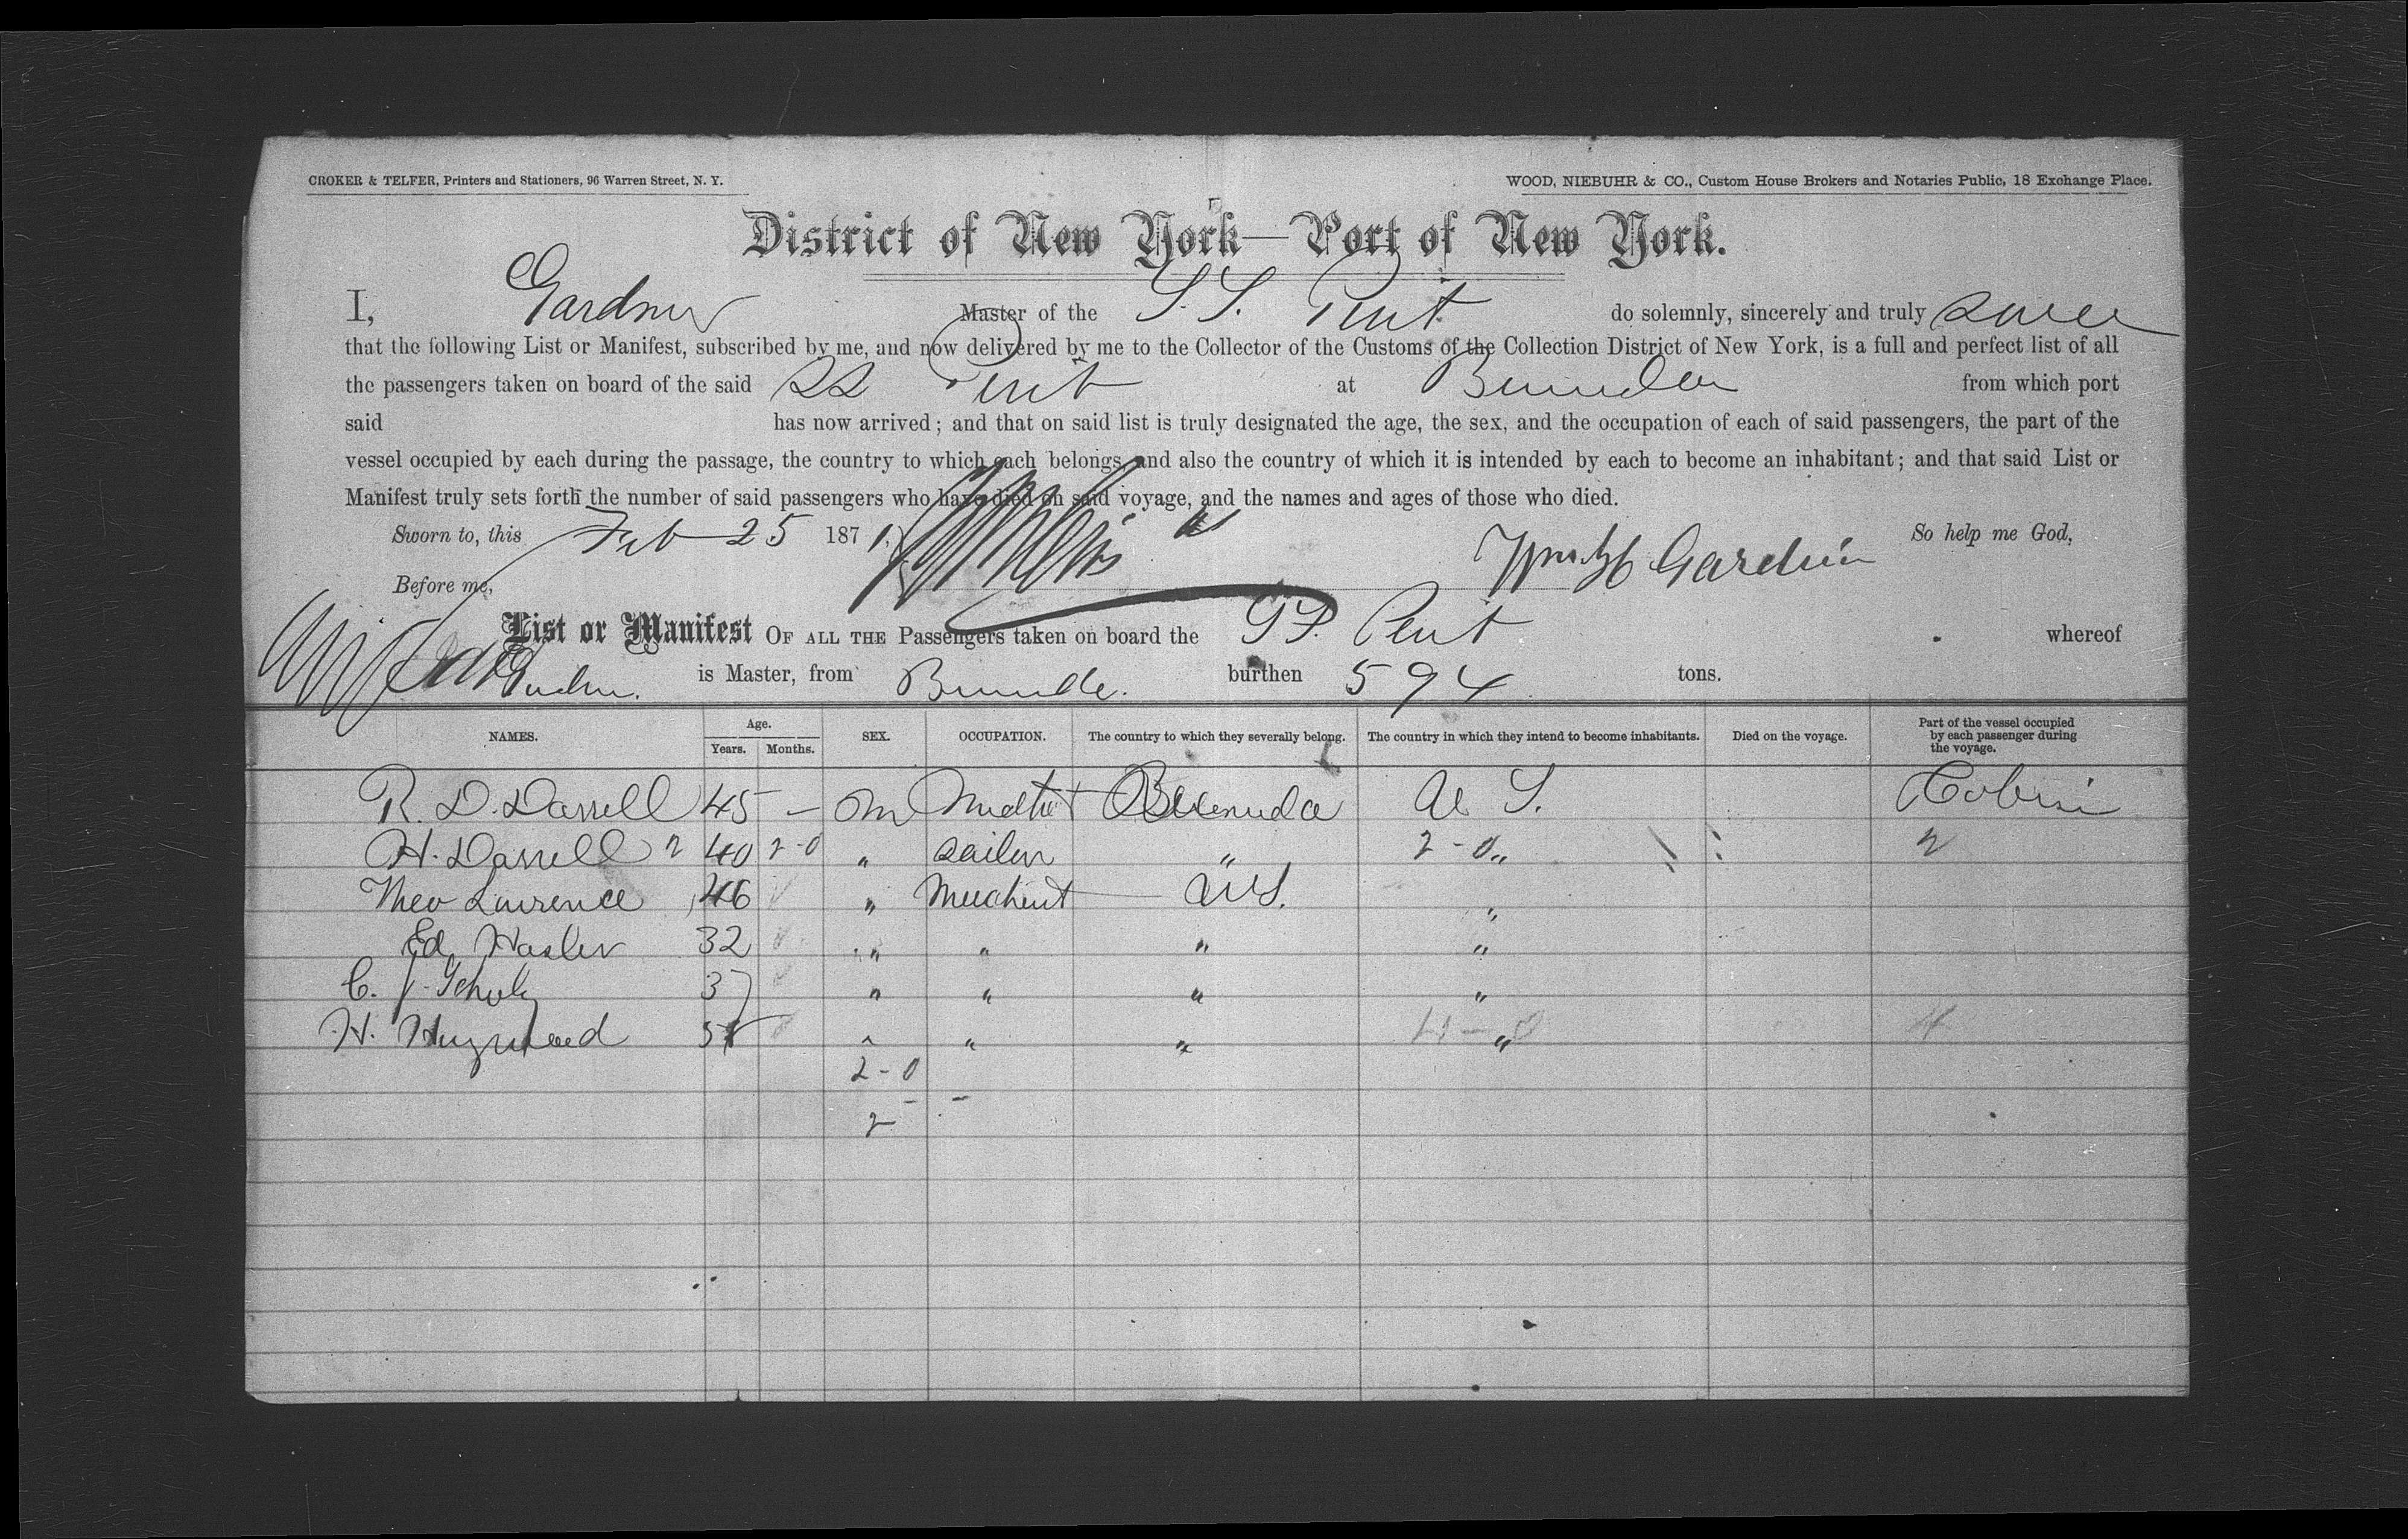 CROKER & TELFER, Printers and Stationers, 96 Warren Street, N. Y.
WOOD, NIEBUHR & CO., Custom House Brokers and Notaries Public, 18 Exchange Place.
District of New York—Port of New York.
I, Gardner Master of the S. S. Perit do solemnly, sincerely and truly swear
that the following List or Manifest, subscribed by me, and now delivered by me to the Collector of the Customs of the Collection District of New York, is a full and perfect list of all
the passengers taken on board of the said SS Perit at Bermuda from which port
said has now arrived; and that on said list is truly designated the age, the sex, and the occupation of each of said passengers, the part of the
vessel occupied by each during the passage, the country to which each belongs, and also the country of which it is intended by each to become an inhabitant; and that said List or
Manifest truly sets forth the number of said passengers who have died on said voyage, and the names and ages of those who died.
Sworn to, this Feb 25 1871, So help me God,
Before me, Wm H Gardner
List or Manifest OF ALL THE Passengers taken on board the SS. Perit whereof
Gardner. is Master, from Bermuda. burthen 594 tons.
NAMES. Age. Years. Months. SEX. OCCUPATION. The country to which they severally belong. The country in which they intend to become inhabitants. Died on the voyage. Part of the vessel occupied by each passenger during the voyage.
R. D. Darrell 45 – m Bermuda U S. Cabin
H. Darrell 2 40 2-0 " sailor " 2-0 " 2
Theo Lawrence 46 " Merchant — US. "
Ed Hasler 32 " " " "
C. J. Schulz 37 " " " "
H. 5 " " " "
2-0
2 - -